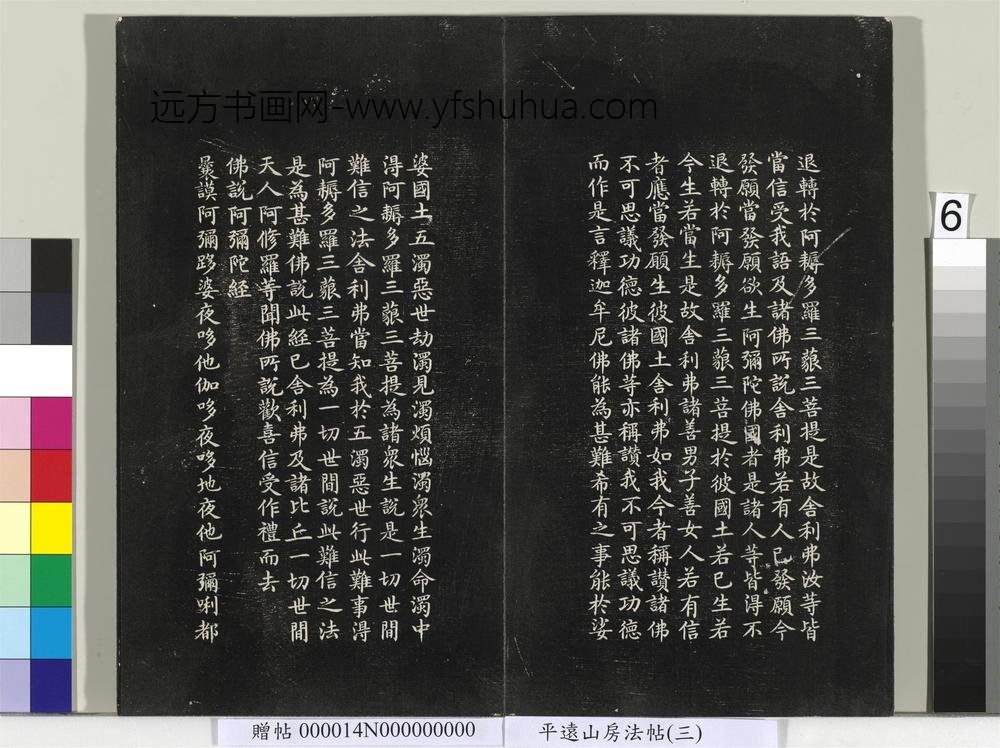 远方书画网-www.yfshuhua.com
退轉於阿耨多羅三藐三菩提是故舍利弗汝等皆
當信受我語及諸佛所說舍利弗若有人已發願今
發願當發願欲生阿彌陀佛國者是諸人等皆得不
退轉於阿耨多羅三藐三菩提於彼國土若已生若
今生若當生是故舍利弗諸善男子善女人若有信
者應當發願生彼國土舍利弗如我今者稱讚諸佛
不可思議功德彼諸佛等亦稱讚我不可思議功德
而作是言釋迦牟尼佛能為甚難希有之事能於娑
婆國土五濁惡世劫濁見濁煩惱濁眾生濁命濁中
得阿耨多羅三藐三菩提為諸眾生說是一切世間
難信之法舍利弗當知我於五濁惡世行此難事得
阿耨多羅三藐三菩提為一切世間說此難信之法
是為甚難佛說此經已舍利弗及諸比丘一切世間
天人阿修羅等聞佛所說歡喜信受作禮而去
佛說阿彌陀經
曩謨阿彌哆婆夜哆他伽哆夜哆地夜他阿彌唎都
6
贈帖 000014N000000000
平遠山房法帖(三)